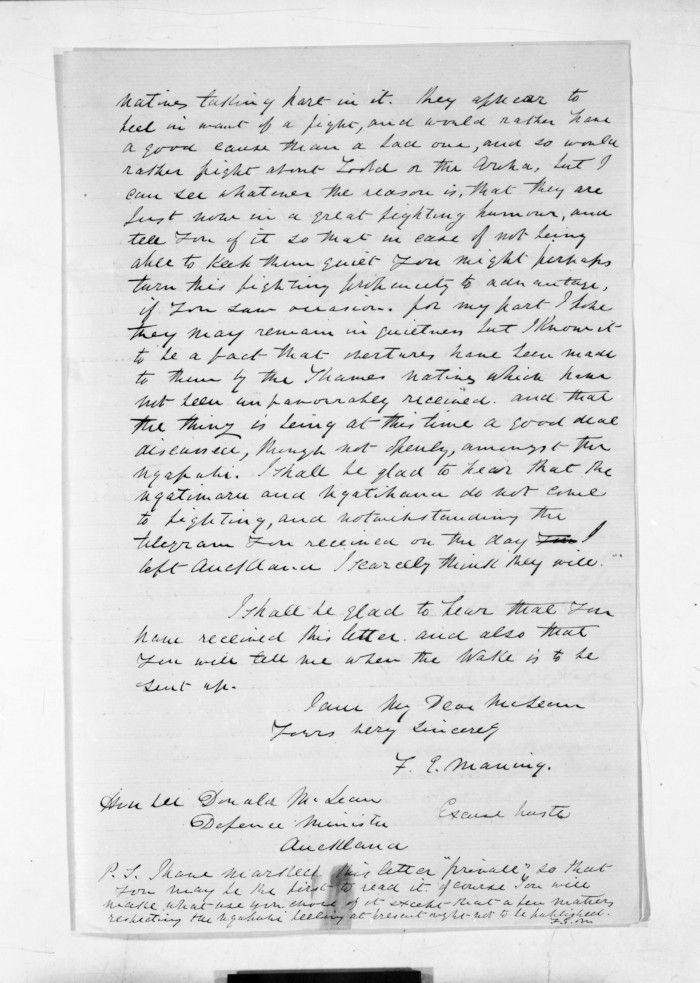 natives taking part in it. they appear to
feel in want of a fight, and would rather have
a good cause than a bad one, and so would
rather fight about Todd or the Aroha, but I
can see whatever the reason is, that they are
just now in a great fighting humour, and
tell you of it so that in case of not being
able to keep them quiet you might perhaps
turn this fighting propensity to advantage,
if you saw occasion. for my part I hope
they may remain in quietness but I know it
to be a fact that overtures have been made
to them by the Thames natives which have
not been unfavourably received. and that
the thing is being at this time a good deal
discussed, though not openly, amongst the
Ngapuhi. I shall be glad to hear that the
Ngatimaru and Ngatihaua do not come
to fighting, and notwithstanding the
telegram you received on the day I
left Auckland I scarcely think they will."
I shall be glad to hear that you
have received this letter. and also that
you will tell me when the Wake is to be
sent up.
I am My Dear McLean
Yours very sincerely
F. E. Maning.
Honble Donald McLean
Defence Minister
Excuse haste
Auckland
P.S. I have marked this letter "private" so that
you may be the first to read it. of course you will
make what use you choose of it except that a few matters
respecting the Ngapuhi feeling at present ought not to be published.
F.E.M